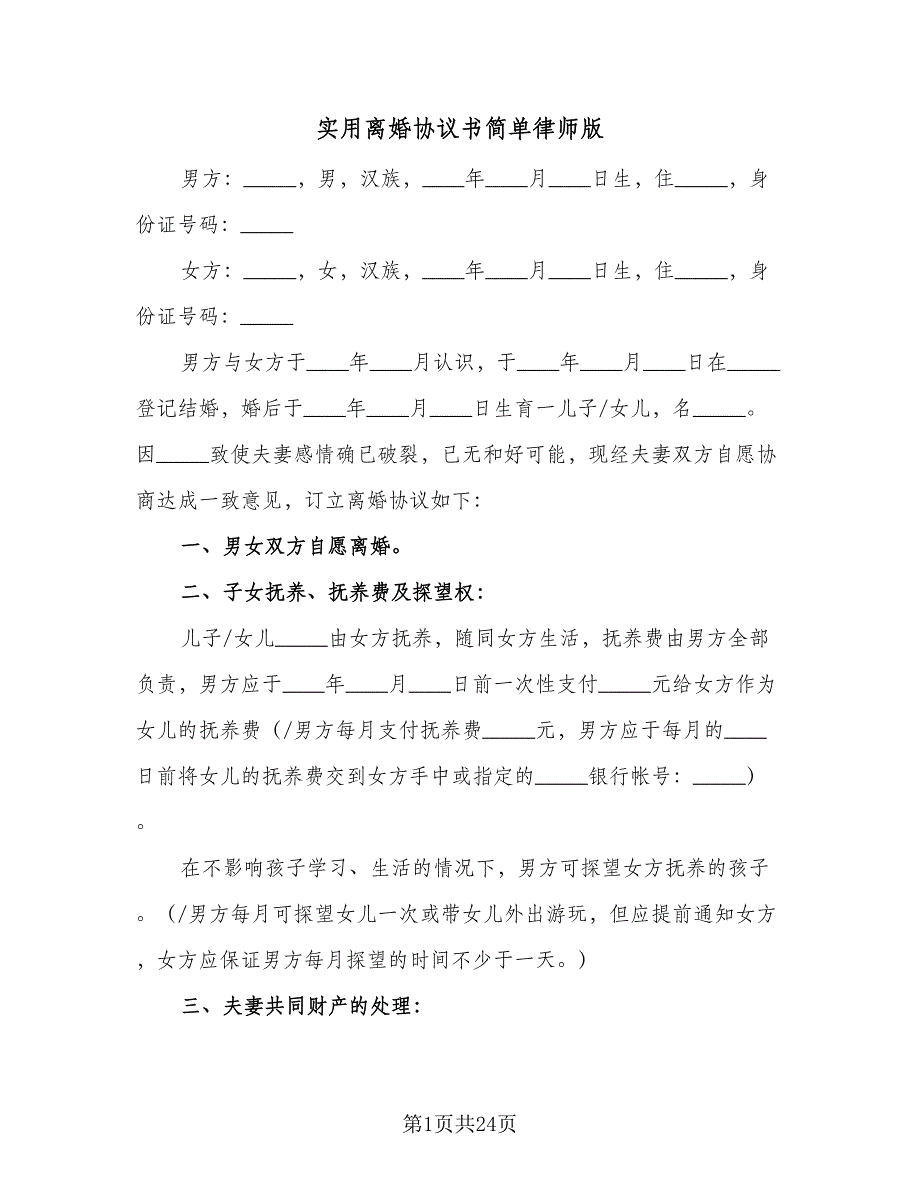 实用离婚协议书简单律师版
男方：_____，男，汉族，____年____月____日生，住_____，身
份证号码：_____
女方：_____，女，汉族，____年____月____日生，住_____，身
份证号码：_____
男方与女方于____年____月认识，于____年____月____日在_____
登记结婚，婚后于____年____月____日生育一儿子/女儿，名_____。
因_____致使夫妻感情确已破裂，已无和好可能，现经夫妻双方自愿协
商达成一致意见，订立离婚协议如下：
一、男女双方自愿离婚。
二、子女抚养、抚养费及探望权：
儿子/女儿_____由女方抚养，随同女方生活，抚养费由男方全部
负责，男方应于____年____月____日前一次性支付_____元给女方作为
女儿的抚养费（/男方每月支付抚养费_____元，男方应于每月的____
日前将女儿的抚养费交到女方手中或指定的_____银行帐号：_____）
。
在不影响孩子学习、生活的情况下，男方可探望女方抚养的孩子
。（/男方每月可探望女儿一次或带女儿外出游玩，但应提前通知女方
，女方应保证男方每月探望的时间不少于一天。）
三、夫妻共同财产的处理：
第1页共24页